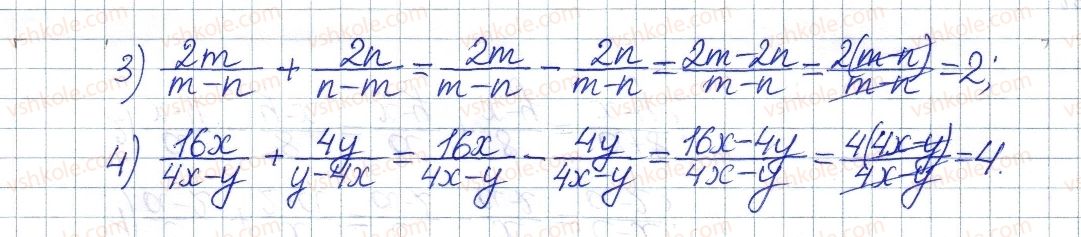 3) 2m/(m-n) + 2n/(n-m) = 2m/(m-n) - 2n/(m-n) = (2m-2n)/(m-n) = 2(m-n)/(m-n) = 2;
4) 16x/(4x-y) + 4y/(y-4x) = 16x/(4x-y) - 4y/(4x-y) = (16x-4y)/(4x-y) = 4(4x-y)/(4x-y) = 4.